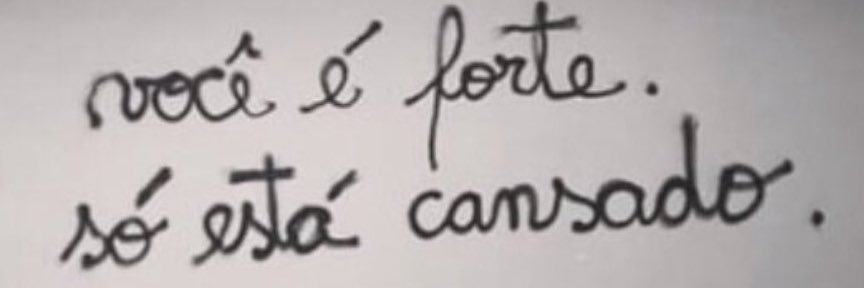 você é forte.
só está cansado.